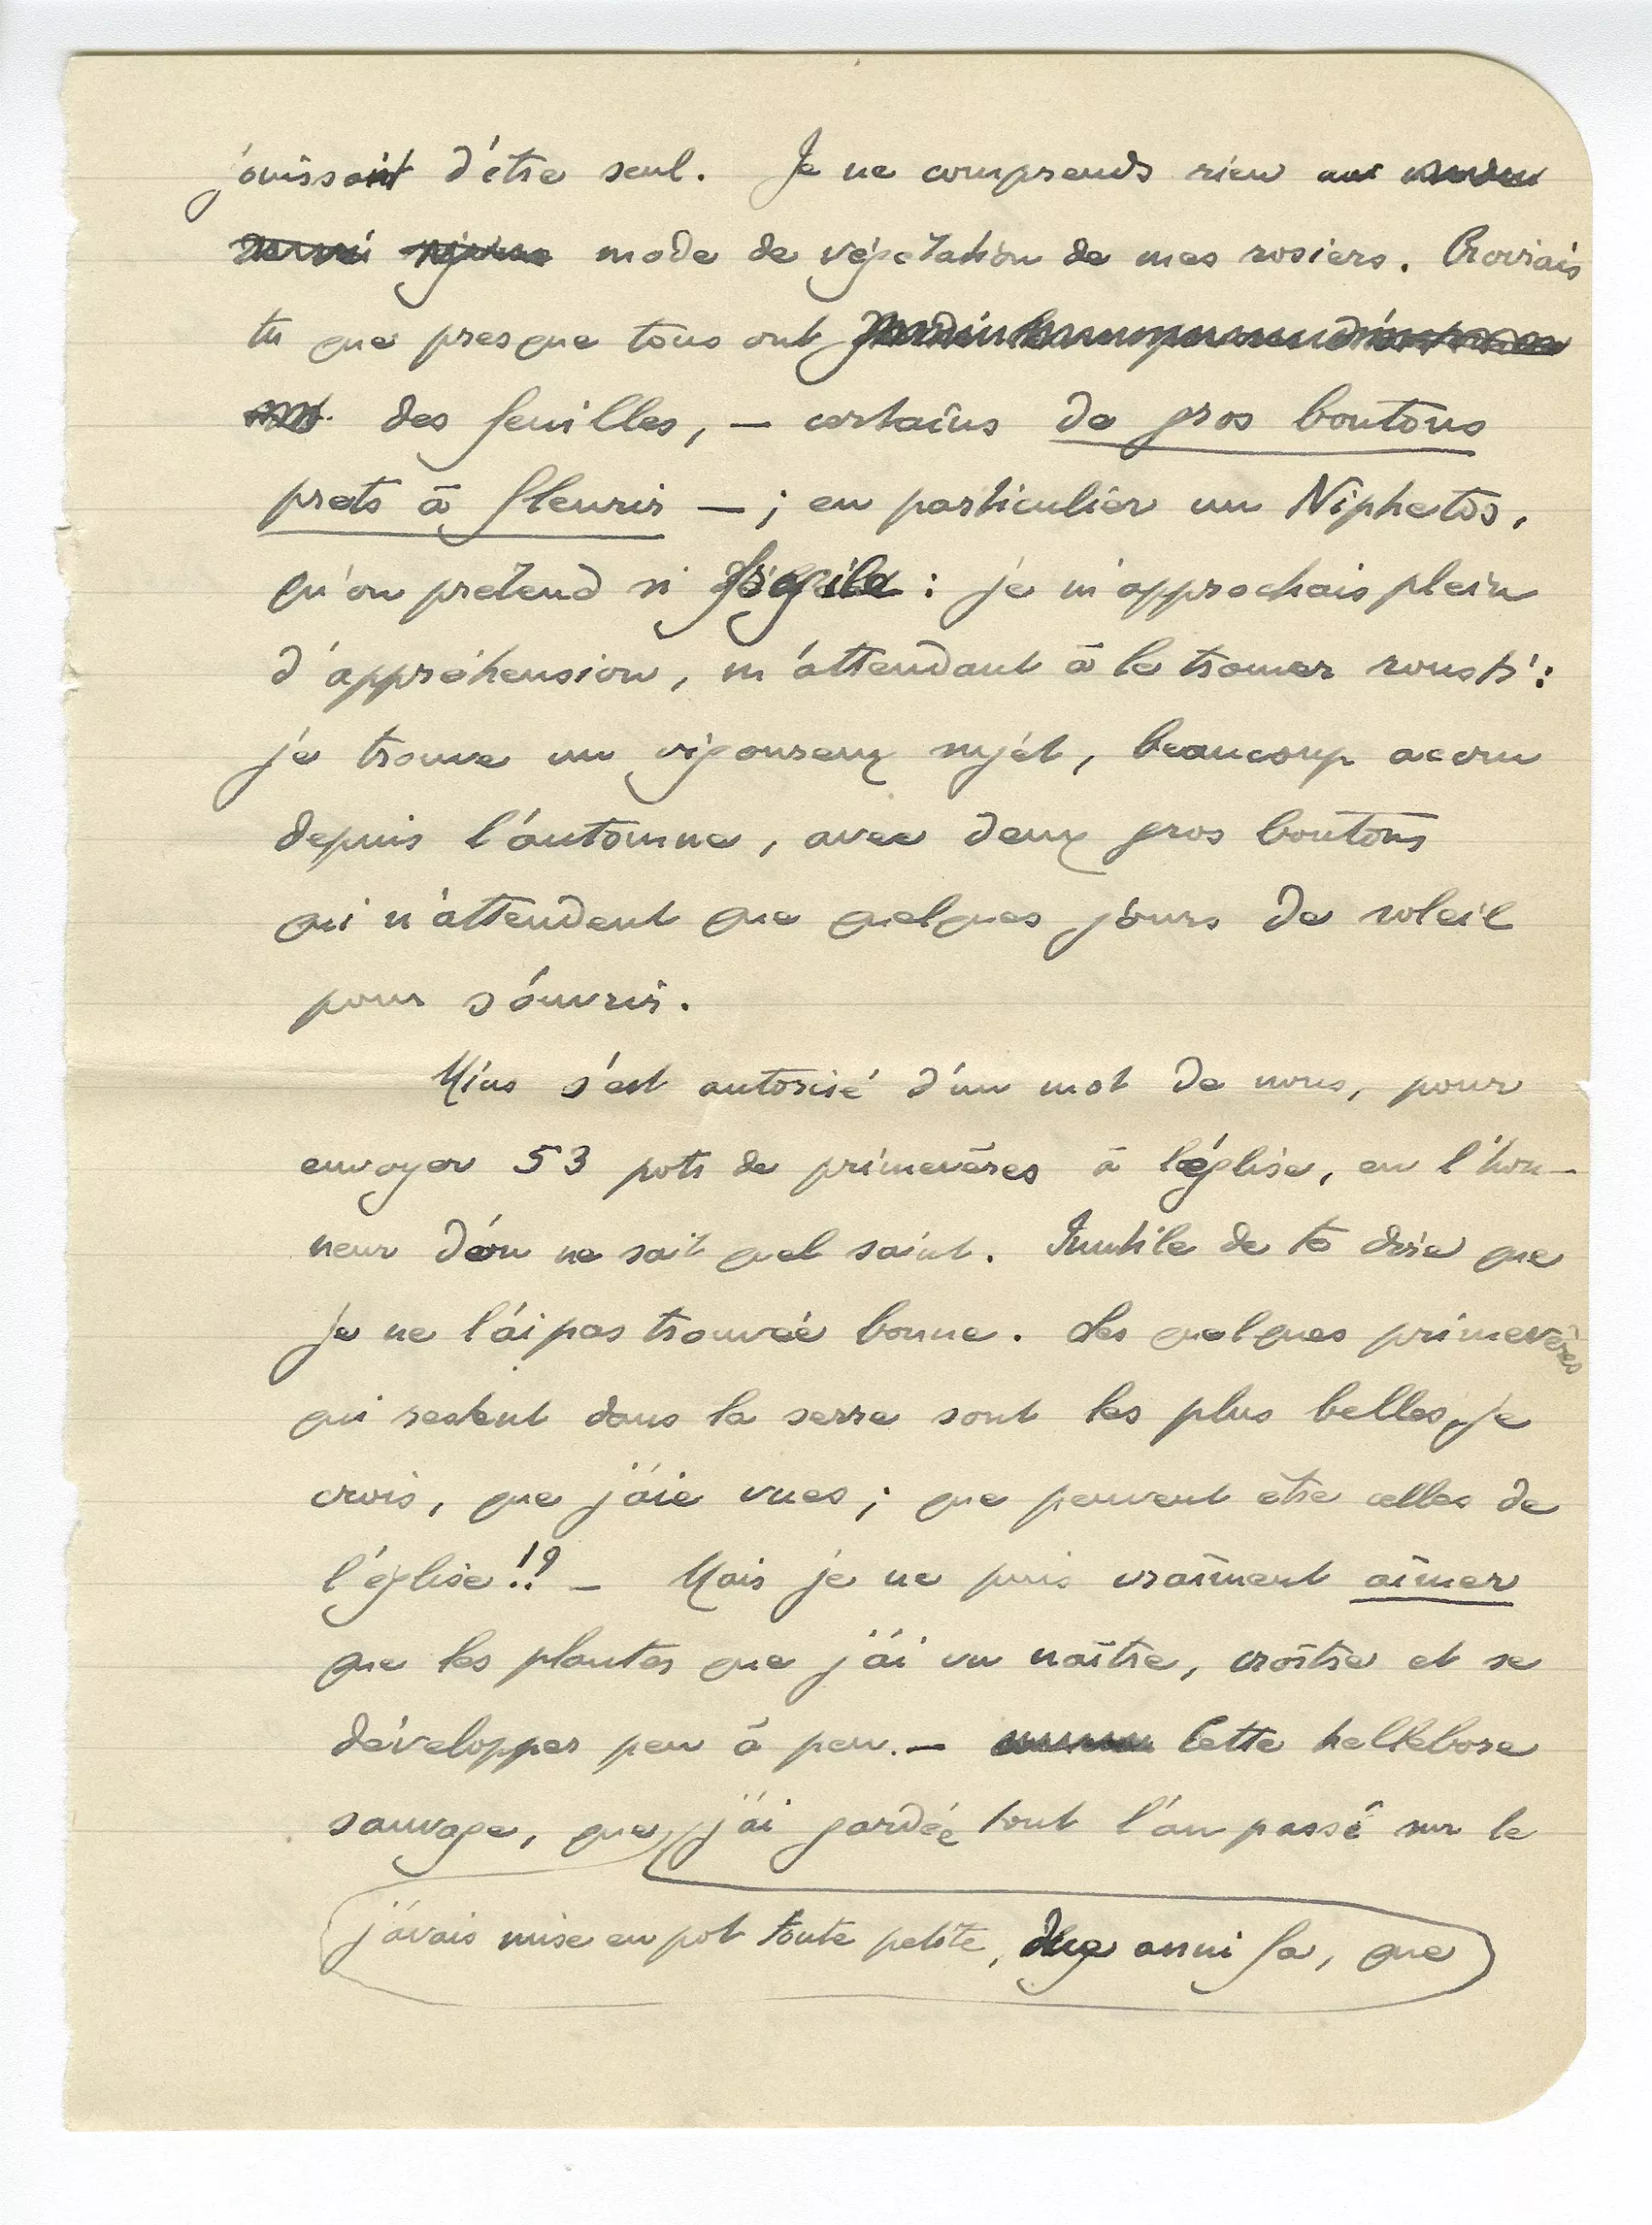 jouissait d'être seul. Je ne comprends rien au
mode de végétation de mes rosiers. Croirais
tu que presque tous ont
des feuilles, – certains de gros boutons
prets à fleurir – ; en particulier un Niphetos,
qu'on prétend si fragile : je m'approchais plein
d'appréhension, m'attendant à le trouver rousti :
je trouve un vigoureux sujet, beaucoup accru
depuis l'automne, avec deux gros boutons
qui n'attendent que quelques jours de soleil
pour s'ouvrir.
Mius s'est autorisé d'un mot de nous, pour
envoyer 53 pots de primevères à l'église, en l'hon–
neur d'on ne sait quel saint. Inutile de te dire que
je ne l'ai pas trouvée bonne. Les quelques primevères
qui restent dans la serre sont les plus belles, je
crois, que j'aie vues ; que peuvent etre celles de
l'église !? – Mais je ne puis vraiment aimer
que les plantes que j'ai vu naître, croître et se
développer peu à peu. – Cette hellebore
sauvage, que j'ai gardée tout l'an passé sur le
j'avais mise en pot toute petite, anni fa, que